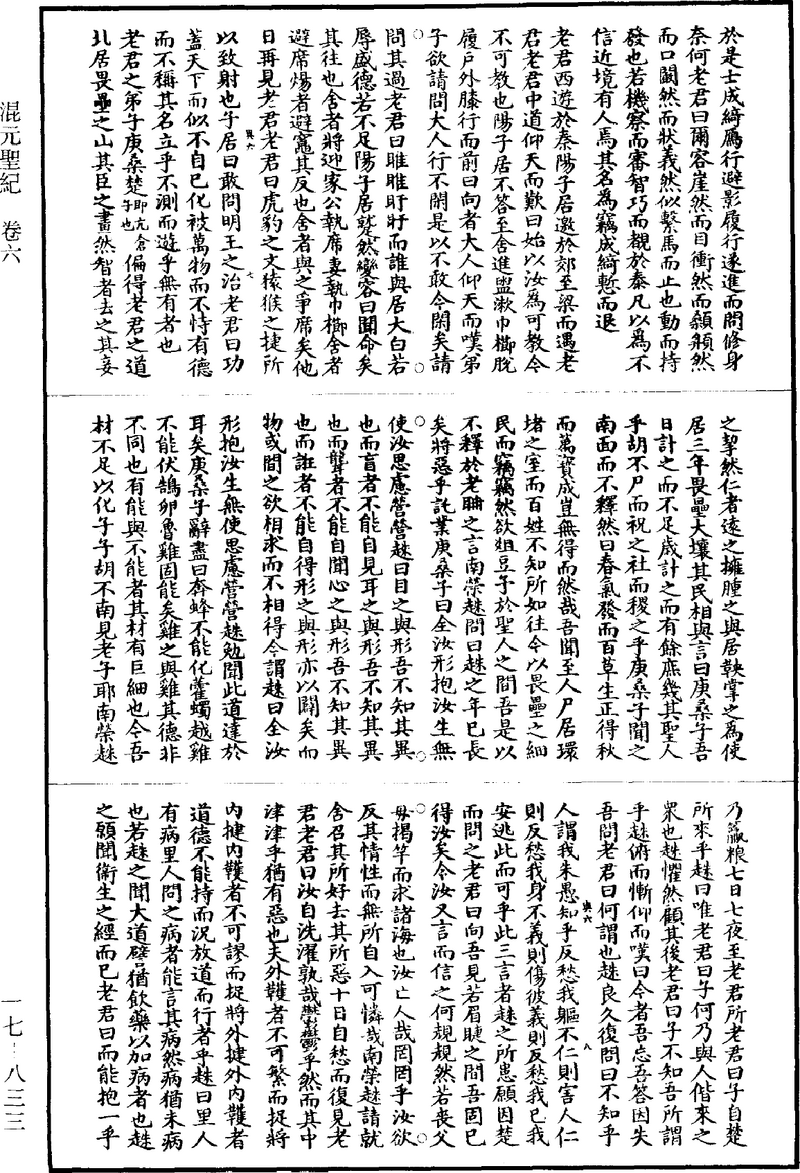 混元聖紀　卷六
於是士成綺鴈行避影履行遂進而問修身
奈何老君曰爾容崖然而目衝然而顙頯然
而口闞然而狀義然似繫馬而止也動而持
發也若機察而審智巧而覩於泰凡以為不
信近境有人焉其名為竊成綺慙而退
老君西遊於秦陽子居邀於郊至梁而遇老
君老君中道仰天而歎曰始以汝為可教今
不可教也陽子居不答至舍進盥漱巾櫛脫
履戶外膝行而前曰向者大人仰天而嘆弟
子欲請問大人行不閑是以不敢今閑矣請
問其過老君曰睢睢盱盱而誰與居大白若
辱盛德若不足陽子居蹵然變容曰聞命矣
其往也舍者將迎家公執席妻執巾櫛舍者
避席煬者避竈其反也舍者與之爭席矣他
日再見老君老君曰虎豹之文猿猴之捷所
以致射也子居曰敢問明王之治老君曰功
蓋天下而似不自已化被萬物而不恃有德
而不稱其名立乎不測而遊乎無有者也
老君之弟子庚桑楚即亢倉子也偏得老君之道
北居畏壘之山其臣之畫然智者去之其妾
之挈然仁者遠之擁腫之與居鞅掌之為使
居三年畏壘大壤其民相與言曰庚桑子吾
日計之而不足歲計之而有餘庶幾其聖人
乎胡不尸而祝之社而稷之乎庚桑子聞之
南面而不釋然曰春氣發而百草生正得秋
而萬寶成豈無得而然哉吾聞至人尸居環
堵之室而百姓不知所如往今以畏壘之細
民而竊竊然欲俎豆予於聖人之間吾是以
不釋於老聃之言南榮趎問曰趎之年已長
矣將惡乎託業庚桑子曰全汝形抱汝生無
使汝思慮營營趎曰目之與形吾不知其異
也而盲者不能自見耳之與形吾不知其異
也而聾者不能自聞心之與形吾不知其異
也而誑者不能自得形之與形亦以闢矣而
物或間之欲相求而不相得今謂趎曰全汝
形抱汝生無使思慮營營趎勉聞此道達於
耳矣庚桑子辭盡曰奔蜂不能化藿蠋越雞
不能伏鵠卵魯雞固能矣雞之與雞其德非
不同也有能與不能者其材有巨細也今吾
材不足以化子子胡不南見老子耶南榮趎
乃贏粮七日七夜至老君所老君曰子自楚
所來乎趎曰唯老君曰子何乃與人偕來之
衆也趎懼然顧其後老君曰子不知吾所謂
乎趎俯而慚仰而嘆曰今者吾忘吾答因失
吾問老君曰何謂也趎良久復問曰不知乎
人謂我朱愚知乎反愁我軀不仁則害人仁
則反愁我身不義則傷彼義則反愁我已我
安逃此而可乎此三言者趎之所患願因楚
而問之老君曰向吾見若眉睫之間吾固已
得汝矣今汝又言而信之何規規然若喪父
母揭竿而求諸海也汝亡人哉罔罔乎汝欲
反其情性而無所自入可憐哉南榮趎請就
舍召其所好去其所惡十日自愁而復見老
君老君曰汝自洗濯孰哉鬱鬱乎然而其中
津津乎猶有惡也夫外韄者不可繁而捉將
內揵內韄者不可謬而捉將外揵外內韄者
道德不能持而況放道而行者乎趎曰里人
有病里人問之病者能言其病然病猶未病
也若趎之聞大道譬猶飲藥以加病者也趎
之願聞衞生之經而已老君曰而能抱一乎
典六　七
典六　八
一七-八三三